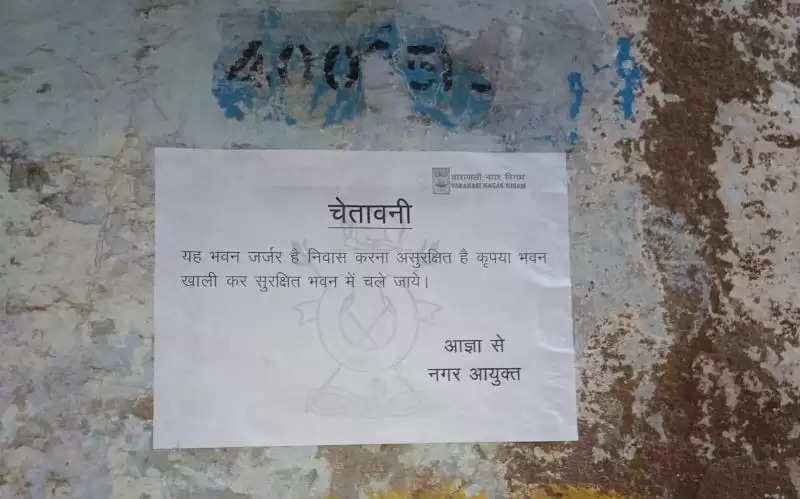 वाराणसी नगर निगम
VARANASI NAGAR NIGAM
चेतावनी
यह भवन जर्जर है निवास करना असुरक्षित है कृपया भवन
खाली कर सुरक्षित भवन में चले जाये।
आज्ञा से
नगर आयुक्त